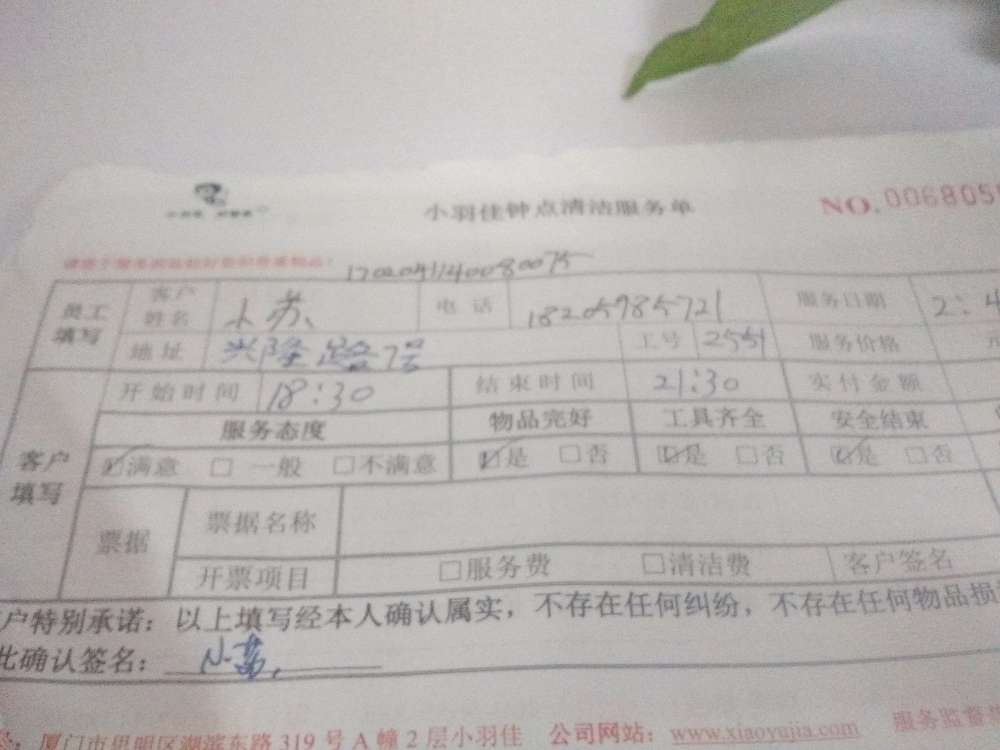 小羽佳钟点清洁服务单 NO.006805
员工填写 客户姓名 小苏 电话 18205985721 服务日期 2:4
地址 兴隆路7号 工号 2551 服务价格 元
客户填写 开始时间 18:30 结束时间 21:30 实付金额
服务态度 物品完好 工具齐全 安全结束
☑满意 □一般 □不满意 ☑是 □否 ☑是 □否 ☑是 □否
票据 票据名称
开票项目 □服务费 □清洁费 客户签名
户特别承诺：以上填写经本人确认属实，不存在任何纠纷，不存在任何物品损
此确认签名：
厦门市思明区湖滨东路319号A幢2层小羽佳 公司网站：www.xiaoyujia.com 服务监督